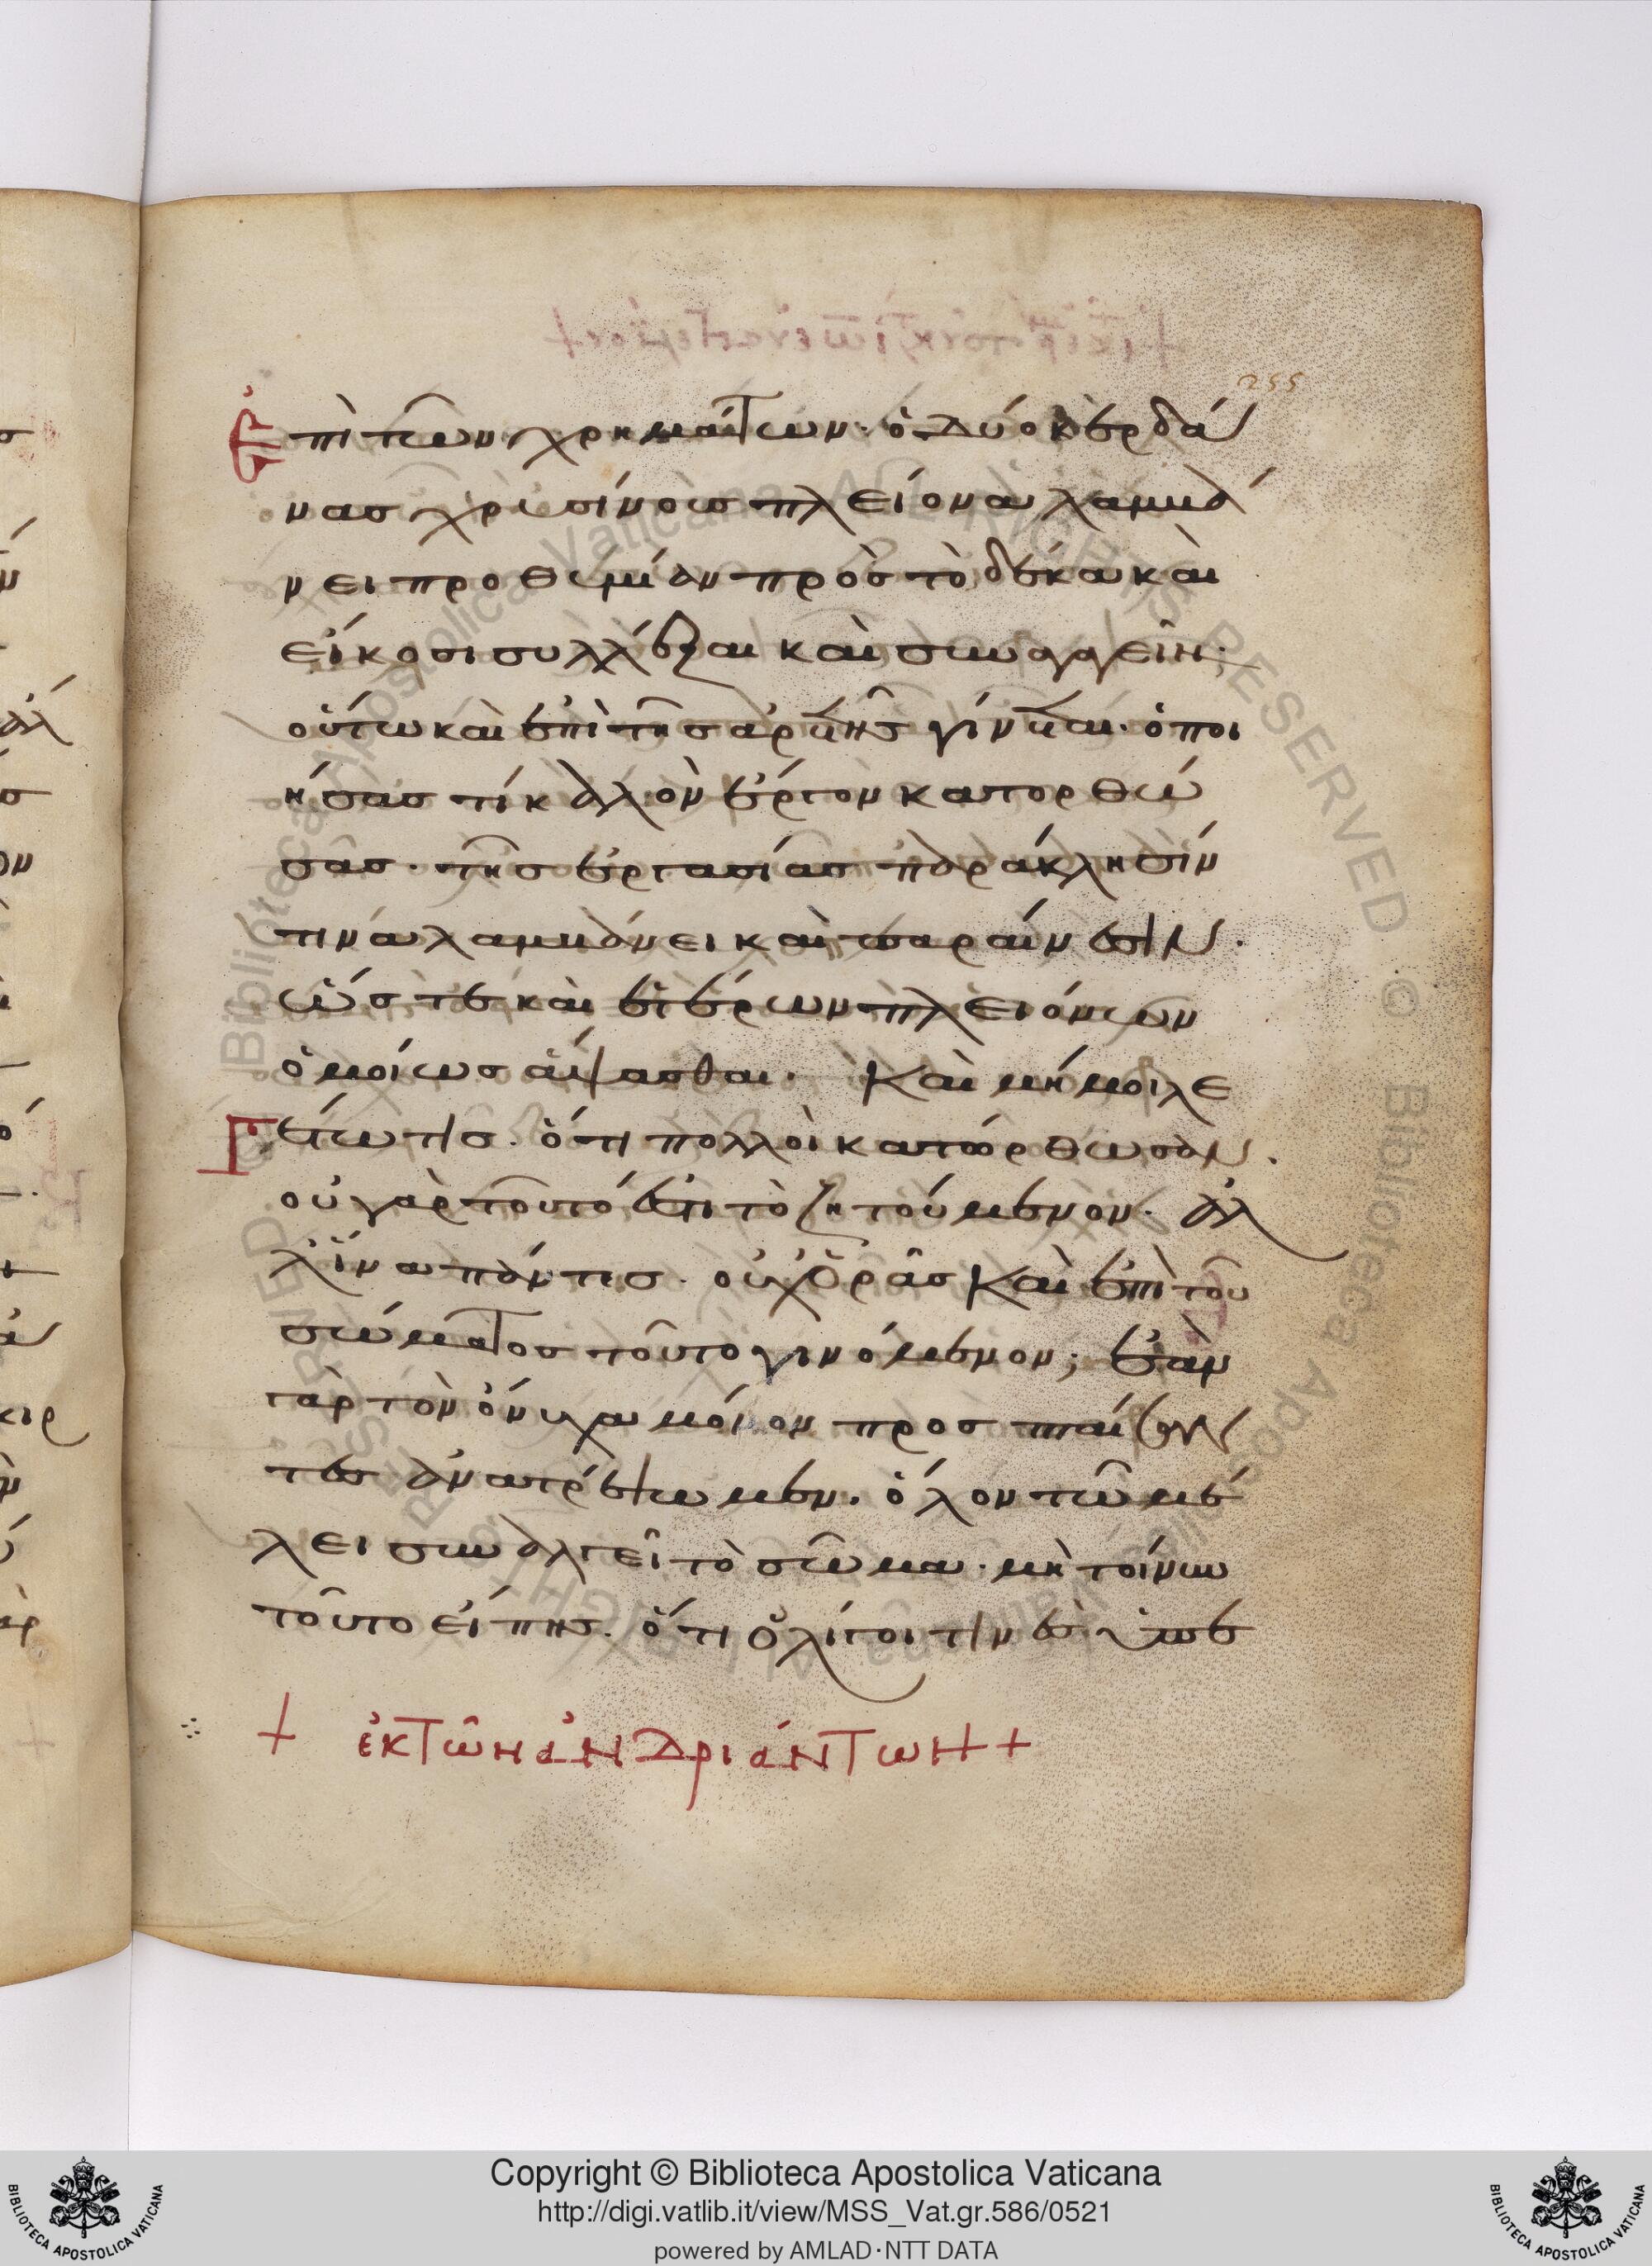 255
Ἐπὶ τῶν χρημάτων· ὁ δύο κερδά
νας χρυσίνους πλείονα λαμβά
νει προθυμίαν πρὸς τὸ δέκα καὶ
εἴκοσι συλλέξαι καὶ συναγαγεῖν·
οὕτω καὶ ἐπὶ τῆς ἀρετῆς γίνεται· ὁ ποι
ήσας τί καλὸν ἔργον κατορθώ
σας· τῆς ἐργασίας παράκλησίν
τινα λαμβάνει καὶ παραίνεσιν·
ὥστε καὶ ἑτέρων πλειόνων
ὁμοίως ἅψασθαι· Καὶ μή μοι λε
γέτω τίς· ὅτι πολλοὶ κατώρθωσαν·
οὐ γὰρ τοῦτό ἐστι τὸ ζητούμενον· ἀλ
λ' ἵνα πάντες· οὐχ ὁρᾶς καὶ ἐπὶ τοῦ
σώματος τοῦτο γινόμενον; ἐὰν
γὰρ τὸν ὄνυχα μόνον προσπταίσαν
τες ἀνατρέψωμεν· ὅλον τῶ μέ
λει συναλγεῖ τὸ σῶμα· μὴ τοίνυν
τοῦτο εἴπης· ὅτι ὀλίγοι τινές
+ ἐκ τῶν ἀνδριάντων +
Copyright © Biblioteca Apostolica Vaticana
http://digi.vatlib.it/view/MSS_Vat.gr.586/0521
powered by AMLAD·NTT DATA
BIBLIOTECA APOSTOLICA VATICANA
BIBLIOTECA APOSTOLICA VATICANA